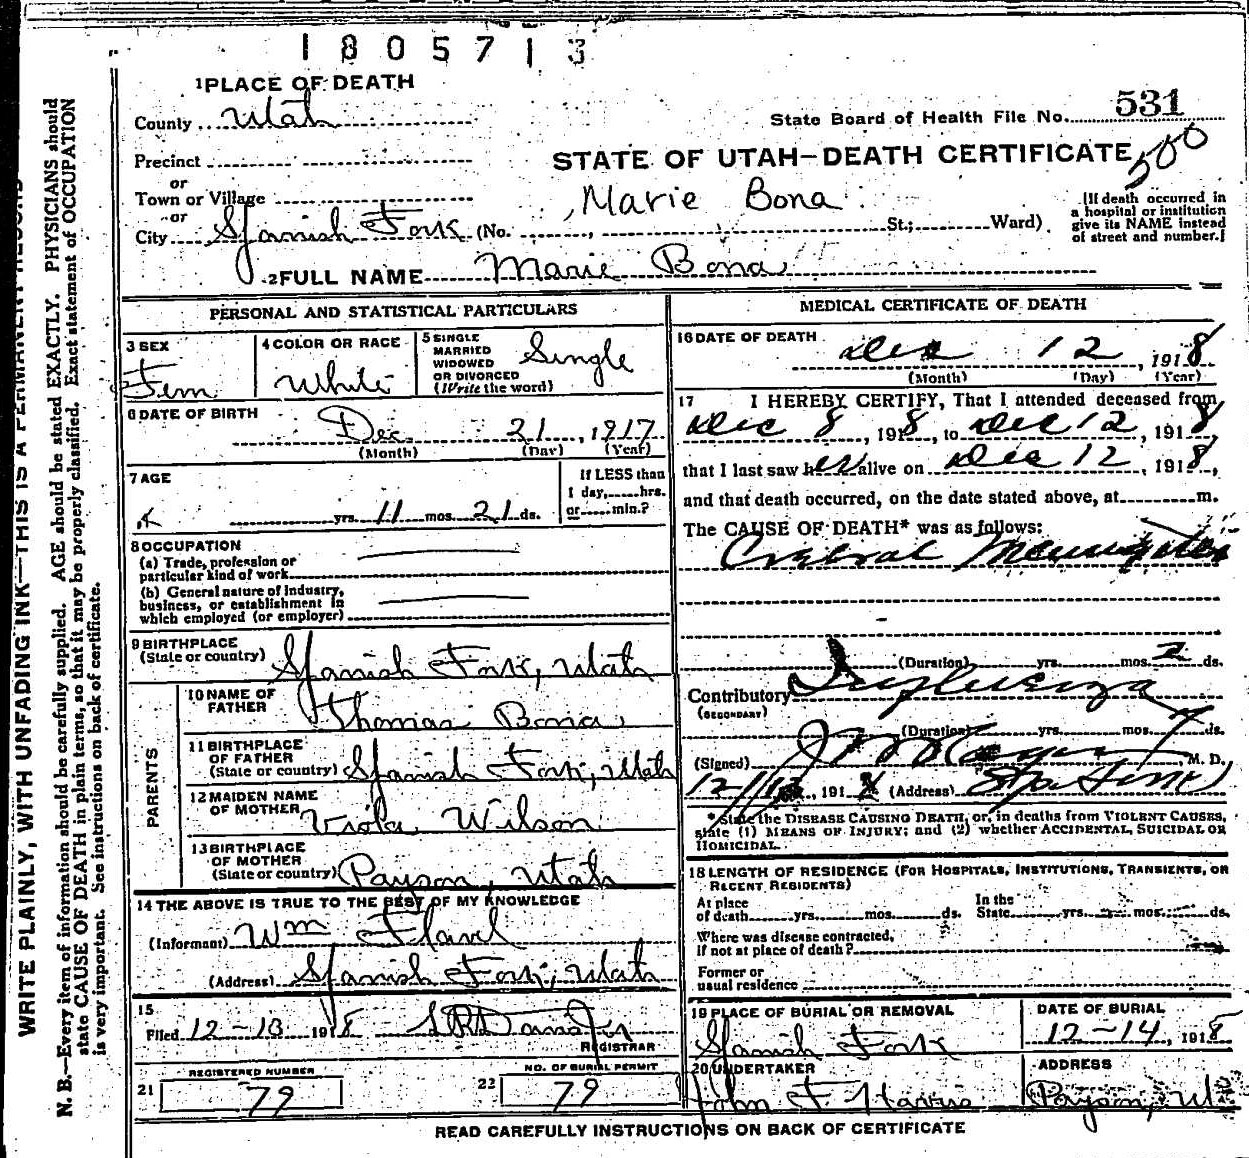 1805713
1 PLACE OF DEATH
County Utah
State Board of Health File No. 531
Precinct
STATE OF UTAH—DEATH CERTIFICATE
500
or
Town or Village
Marie Bona
or
City Spanish Fork (No. , St.; Ward)
[If death occurred in
a hospital or institution
give its NAME instead
of street and number.]
2 FULL NAME Marie Bona
PERSONAL AND STATISTICAL PARTICULARS
3 SEX
Fem
4 COLOR OR RACE
White
5 SINGLE
MARRIED
WIDOWED
OR DIVORCED
(Write the word)
Single
6 DATE OF BIRTH
Dec. 21, 1917
(Month) (Day) (Year)
7 AGE
yrs. 11 mos. 21 ds.
If LESS than
1 day, hrs.
or min.?
8 OCCUPATION
(a) Trade, profession or
particular kind of work
(b) General nature of industry,
business, or establishment in
which employed (or employer)
9 BIRTHPLACE
(State or country) Spanish Fork, Utah
PARENTS
10 NAME OF
FATHER Thomas Bona
11 BIRTHPLACE
OF FATHER
(State or country) Spanish Fork, Utah
12 MAIDEN NAME
OF MOTHER Viola Wilson
13 BIRTHPLACE
OF MOTHER
(State or country) Payson, Utah
14 THE ABOVE IS TRUE TO THE BEST OF MY KNOWLEDGE
(Informant) Wm Flavel
(Address) Spanish Fork, Utah
15
Filed 12-13 1918
REGISTRAR
21 REGISTERED NUMBER
79
22 NO. OF BURIAL PERMIT
79
MEDICAL CERTIFICATE OF DEATH
16 DATE OF DEATH
Dec 12, 1918
(Month) (Day) (Year)
17 I HEREBY CERTIFY, That I attended deceased from
Dec 8, 1918, to Dec 12, 1918,
that I last saw her alive on Dec 12, 1918,
and that death occurred, on the date stated above, at m.
The CAUSE OF DEATH* was as follows:
Cerebral Meningitis
(Duration) yrs. mos. 2 ds.
Contributory Influenza
(SECONDARY)
(Duration) yrs. mos. 7 ds.
(Signed) M. D.
, 191 (Address) Spa Fork
* State the DISEASE CAUSING DEATH, or, in deaths from VIOLENT CAUSES,
state (1) MEANS OF INJURY; and (2) whether ACCIDENTAL, SUICIDAL OR
HOMICIDAL.
18 LENGTH OF RESIDENCE (FOR HOSPITALS, INSTITUTIONS, TRANSIENTS, OR
RECENT RESIDENTS)
At place
of death yrs. mos. ds.
In the
State yrs. mos. ds.
Where was disease contracted,
if not at place of death?
Former or
usual residence
19 PLACE OF BURIAL OR REMOVAL
Spanish Fork
DATE OF BURIAL
12-14, 1918
20 UNDERTAKER
John F
ADDRESS
Payson, Ut
READ CAREFULLY INSTRUCTIONS ON BACK OF CERTIFICATE
WRITE PLAINLY, WITH UNFADING INK—THIS IS A PERMANENT RECORD
N. B.—Every item of information should be carefully supplied. AGE should be stated EXACTLY. PHYSICIANS should
state CAUSE OF DEATH in plain terms, so that it may be properly classified. Exact statement of OCCUPATION
is very important. See instructions on back of certificate.